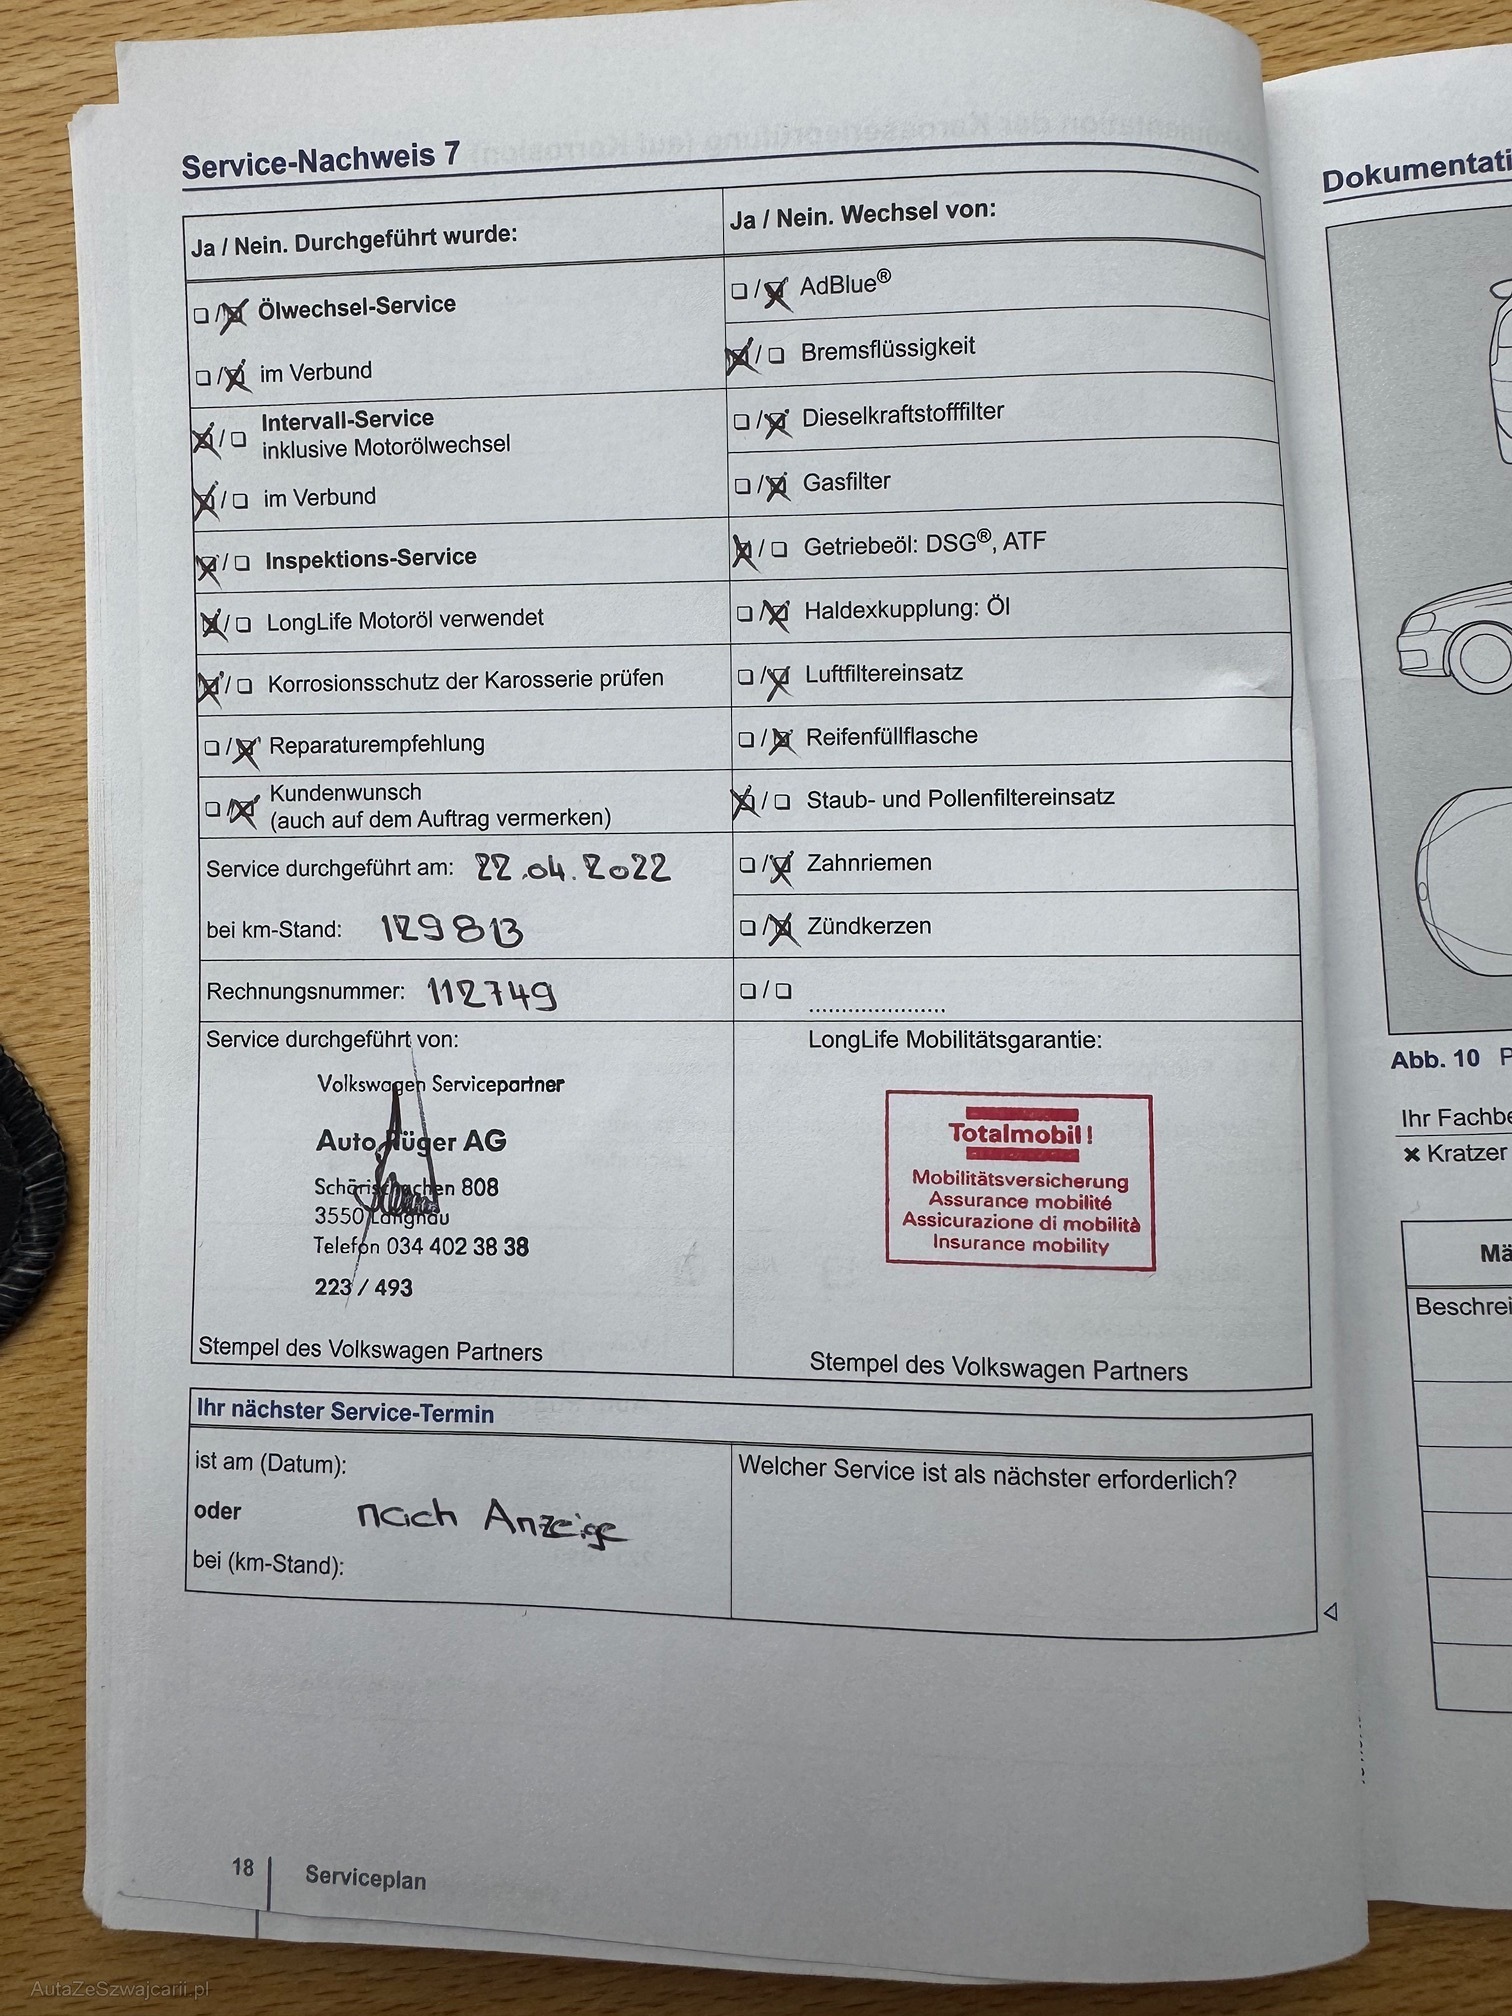 Service-Nachweis 7
Ja / Nein. Durchgeführt wurde:
Ölwechsel-Service
im Verbund
Intervall-Service
inklusive Motorölwechsel
im Verbund
Inspektions-Service
LongLife Motoröl verwendet
Korrosionsschutz der Karosserie prüfen
Reparaturempfehlung
Kundenwunsch
(auch auf dem Auftrag vermerken)
Service durchgeführt am: 22.04.2022
bei km-Stand: 129813
Rechnungsnummer: 112749
Service durchgeführt von:
Volkswagen Servicepartner
Auto Rüger AG
Schärischachen 808
3550 Langnau
Telefon 034 402 38 38
223 / 493
Stempel des Volkswagen Partners
Ja / Nein. Wechsel von:
AdBlue®
Bremsflüssigkeit
Dieselkraftstofffilter
Gasfilter
Getriebeöl: DSG®, ATF
Haldexkupplung: Öl
Luftfiltereinsatz
Reifenfüllflasche
Staub- und Pollenfiltereinsatz
Zahnriemen
Zündkerzen
LongLife Mobilitätsgarantie:
Totalmobil!
Mobilitätsversicherung
Assurance mobilité
Assicurazione di mobilità
Insurance mobility
Stempel des Volkswagen Partners
Ihr nächster Service-Termin
ist am (Datum):
oder nach Anzeige
bei (km-Stand):
Welcher Service ist als nächster erforderlich?
18 Serviceplan
Dokumentati
Abb. 10 P
Ihr Fachbe
Kratzer
Mä
Beschrei
AutaZeSzwajcarii.pl